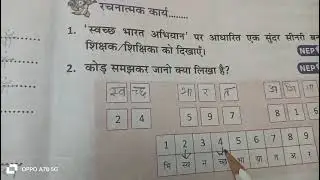 रचनात्मक कार्य........
1. 'स्वच्छ भारत अभियान' पर आधारित एक सुंदर सीनरी बन
शिक्षक/शिक्षिका को दिखाएँ।
NEP
2. कोड समझकर जानो क्या लिखा है?
NEP
स्व च्छ भा र त
2 4 5 9 7 8 1 6
1 2 3 4 5 6 7 8 9
भि स्व न च्छ भा या त अ र
OPPO A78 5G